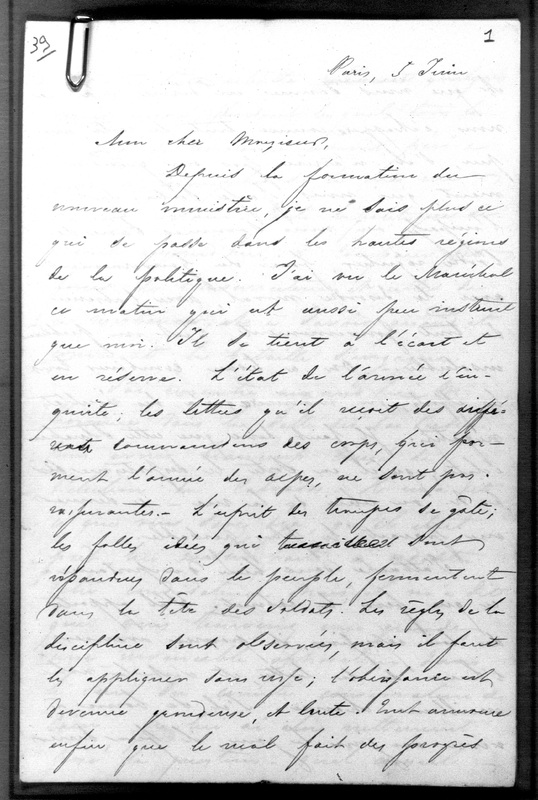 39/
1
Paris, 5 Juin
Mon cher Monsieur,
Depuis la formation du
nouveau ministère, je ne sais plus ce
qui se passe dans les hautes régions
de la politique. J'ai vu le Maréchal
ce matin qui est aussi peu instruit
que moi. Il se tient à l'écart et
en réserve. L'état de l'armée l'in-
quiète; les lettres qu'il reçoit des diffé-
rents commandans des corps, qui for-
ment l'armée des alpes, ne sont pas
rassurantes.- L'esprit des troupes se gâte;
les folles idées qui sont
répandues dans le peuple, fermentent
dans la tête des soldats. Les règles de la
discipline sont observées, mais il faut
les appliquer sans cesse; l'obéissance est
devenue grondeuse, et lente. Tout annonce
enfin que le mal fait des progrès